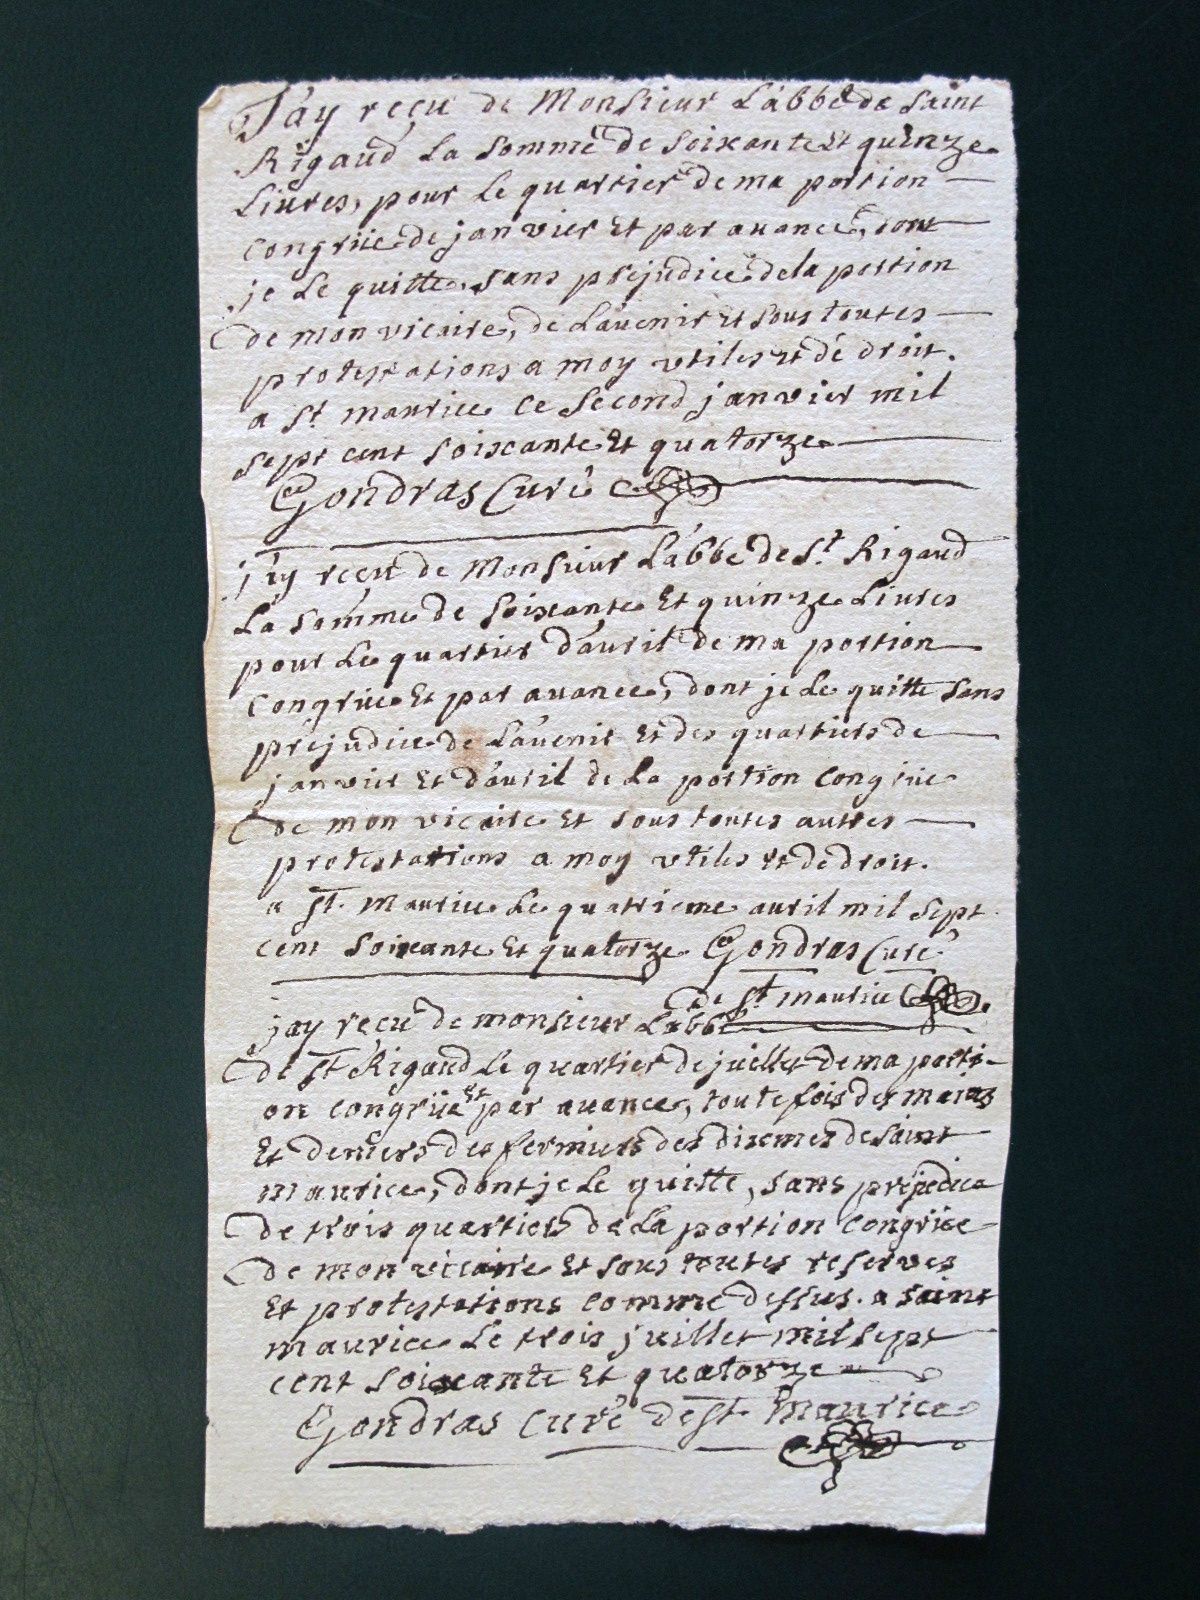 J'ay reçu de Monsieur L'abbé de Saint
Rigaud La somme de soixante Et quinze
Liures, pour Le quartier de ma portion
congrüe de janvier Et par auance, dont
je Le quitte, sans prejudice de la portion
de mon vicaire, de L'auenir Et sous toutes
protestations a moy vtiles et de droit.
a St. maurice ce second janvier mil
sept cent soixante Et quatorze
Gondras Curé
j'ay reçu de Monsieur L'abbé de St. Rigaud
La somme de soixante Et quinze Liures
pour Le quartier d'auril de ma portion
congrüe Et par auance, dont je Le quitte sans
prejudice de L'auenir Et des quartiers de
janvier Et d'auril de La portion congrüe
de mon vicaire Et sous toutes autres
protestations a moy vtiles et de droit.
a St. Maurice Le quatrieme auril mil sept
cent soixante Et quatorze Gondras Curé
de St maurice
jay reçu de monsieur L'abbé
de St Rigaud Le quartier de juillet de ma porti-
on congrüe et par auance, toute fois des mains
Et deniers des fermiers des dixemes de saint
maurice, dont je Le quitte, sans prejudice
de trois quartiers de La portion congrüe
de mon vicaire Et sous toutes reserves
Et protestations comme dessus. a saint
maurice Le trois juillet mil sept
cent soixante Et quatorze
Gondras Curé de St. Maurice